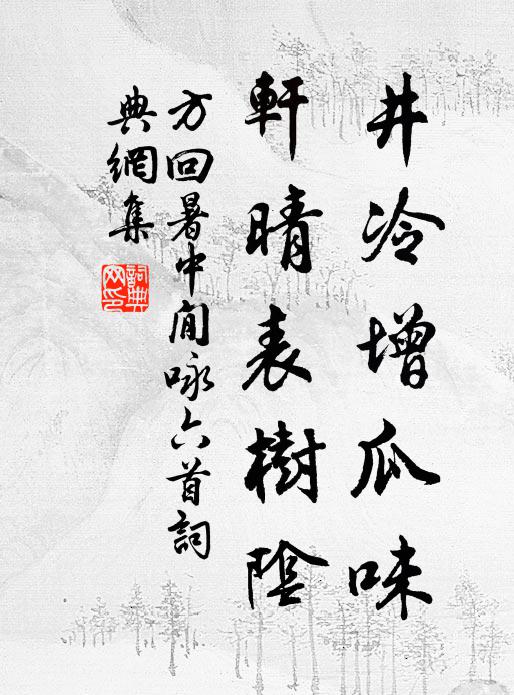 井冷增瓜味
軒晴表樹陰
方回暑中閒咏六首詞
典網集
詞典網印